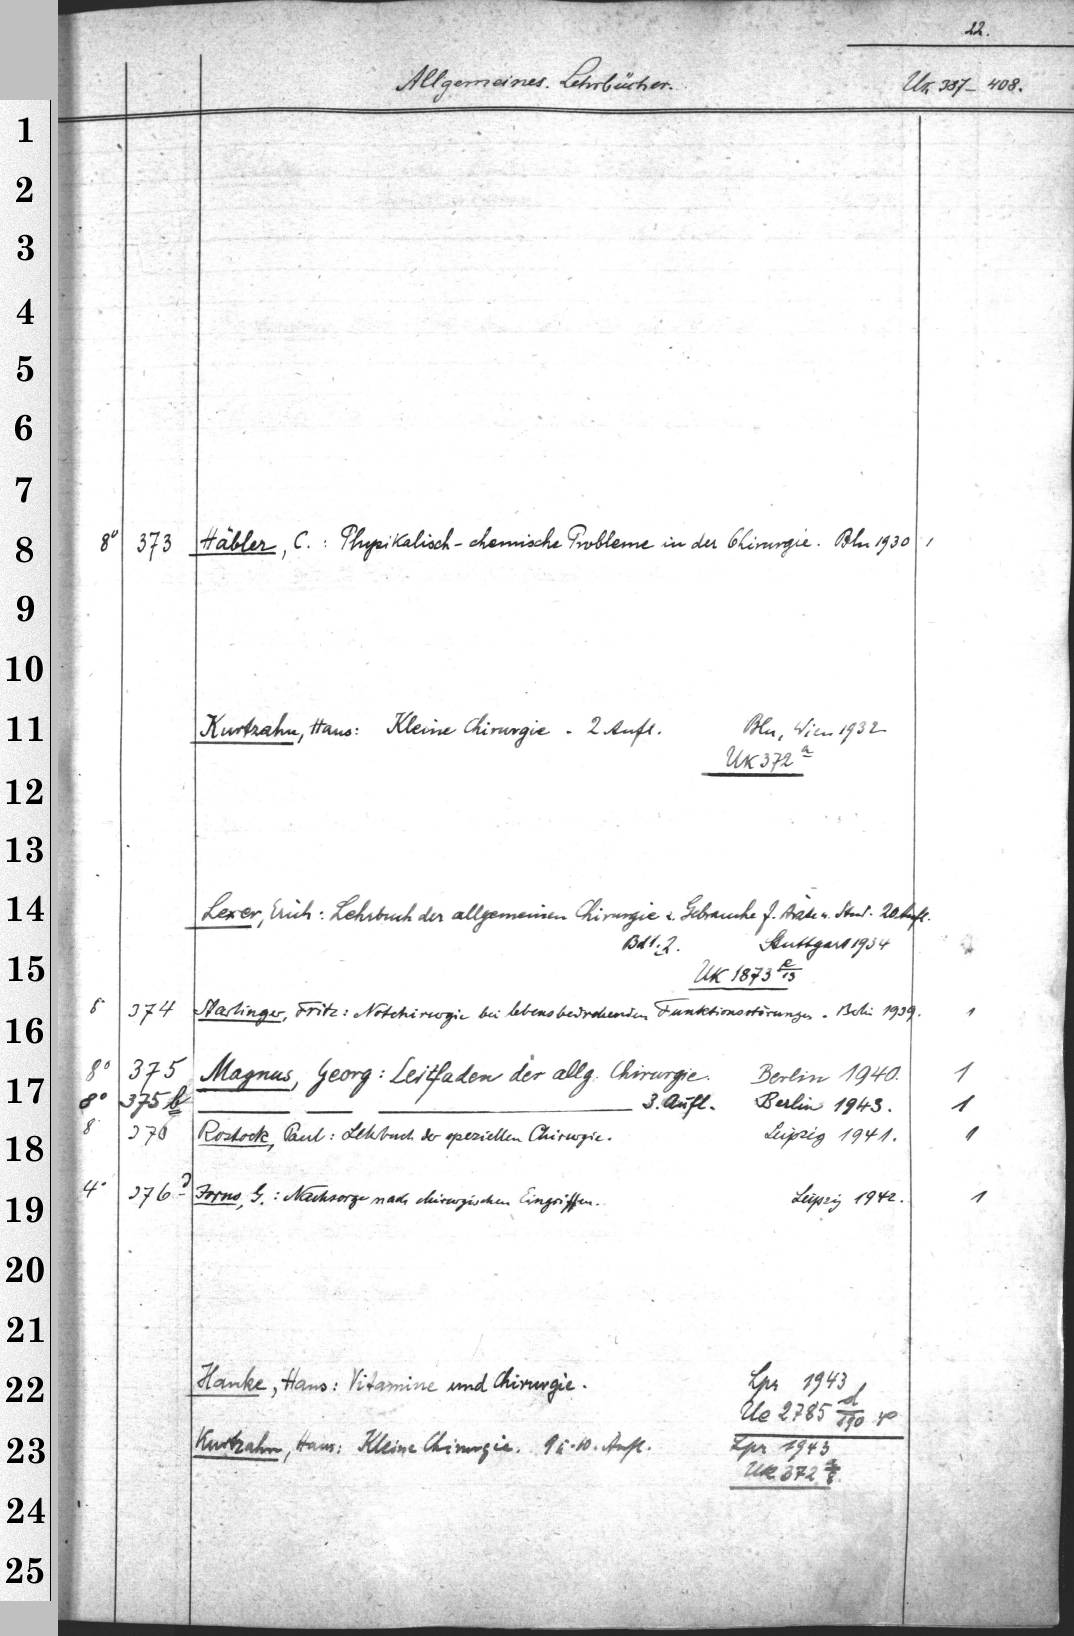 22.
Allgemeines. Lehrbücher. Uk 387-408.
1
2
3
4
5
6
7
8 8° 373 Häbler, C.: Physikalisch-chemische Probleme in der Chirurgie. Bln 1930 1
9
10
11 Kurtzahn, Hans: Kleine Chirurgie. 2 Aufl. Bln, Wien 1932
Uk 372 a
12
13
14 Lexer, Erich: Lehrbuch der allgemeinen Chirurgie z. Gebrauche f. Ärzte u. Stud. 20 Aufl.
Bd 1.2. Stuttgart 1934
15 Uk 1873
16 8° 374 Starlinger, Fritz: Notchirurgie bei lebensbedrohenden Funktionsstörungen. Berlin 1939. 1
8° 375 Magnus, Georg: Leitfaden der allg. Chirurgie. Berlin 1940. 1
17 8° 375 b 3. Aufl. Berlin 1943. 1
18 8 376 Rostock, Paul: Lehrbuch der speziellen Chirurgie. Leipzig 1941. 1
19 4° 376 G.: Nachsorge nach chirurgischen Eingriffen. Leipzig 1942. 1
20
21
22 Hanke, Hans: Vitamine und Chirurgie. Lpz 1943
Ue 2785 d/190
23 Kurtzahn, Hans: Kleine Chirurgie. 9 u. 10. Aufl. Lpz 1943
Uk 372
24
25